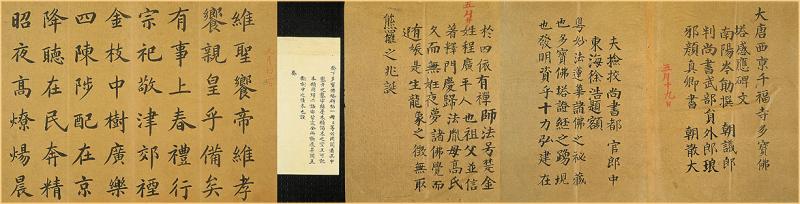 大唐西京千福寺多寶佛
塔感應碑文
南陽岑勛撰 朝議郎
判尚書武部員外郎琅
邪顏真卿書 朝散大
五月十九日
夫撿挍尚書都官郎中
東海徐浩題額
粵妙法蓮華諸佛之祕藏
也多寶佛塔證經之踴現
也發明資乎十力弘建在
於四依有禪師法号楚金
姓程廣平人也祖父並信
著釋門慶歸法胤母高氏
久而無姙夜夢諸佛覺而
有娠是生龍象之徵無取
熊羆之兆誕
維聖饗帝維孝
饗親皇乎備矣
有事上春禮行
宗祀敬津郊禋
金枝中樹廣樂
四陳陟配在京
降聽在民奔精
昭夜高燎煬晨